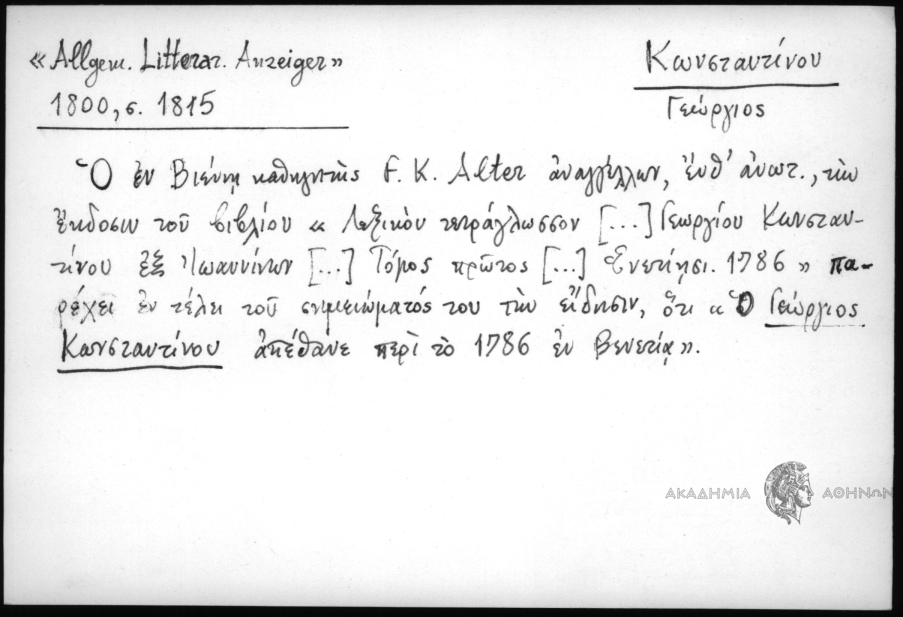 «Allgem. Litterar. Anzeiger»
1800, σ. 1815
Κωνσταντίνου
Γεώργιος
Ὁ ἐν Βιέννῃ καθηγητὴς F. K. Alter ἀναγγέλλων, ἔνθ' ἀνωτ., τὴν
ἔκδοσιν τοῦ βιβλίου « Λεξικὸν τετράγλωσσον [...] Γεωργίου Κωνσταν-
τίνου ἐξ Ἰωαννίνων [...] Τόμος πρῶτος [...] Ἐνετίῃσι. 1786 » πα-
ρέχει ἐν τέλει τοῦ σημειώματός του τὴν εἴδησιν, ὅτι « Ὁ Γεώργιος
Κωνσταντίνου ἀπέθανε περὶ τὸ 1786 ἐν Βενετίᾳ ».
ΑΚΑΔΗΜΙΑ ΑΘΗΝΩΝ